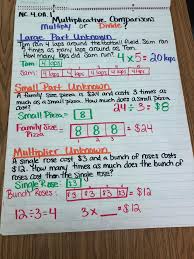 NC.4.OA.1 Multiplicative Comparison:
Multiply or Divide?
Large Part Unknown
Tom ran 4 laps around the football field. Sam ran
5 times as many laps around as Tom.
How many laps did Sam run? 4 x 5 = 20 laps
Tom 4 laps
Sam 4 laps 4 laps 4 laps 4 laps 4 laps
Small Part Unknown
A Family size pizza is $24 and costs 3 times as
much as a small pizza. How much does a small pizza
cost?
Small Pizza = 8 24 ÷ 3 = 8
Family Size Pizza = 8 8 8 = $24
Multiplier Unknown
A single rose cost $3 and a bunch of roses costs
$12. How many times as much does the bunch of
roses cost than the single rose?
Single Rose: $3
Bunch Roses = $3 $3 $3 $3 = $12
12 ÷ 3 = 4 3 x __ = $12